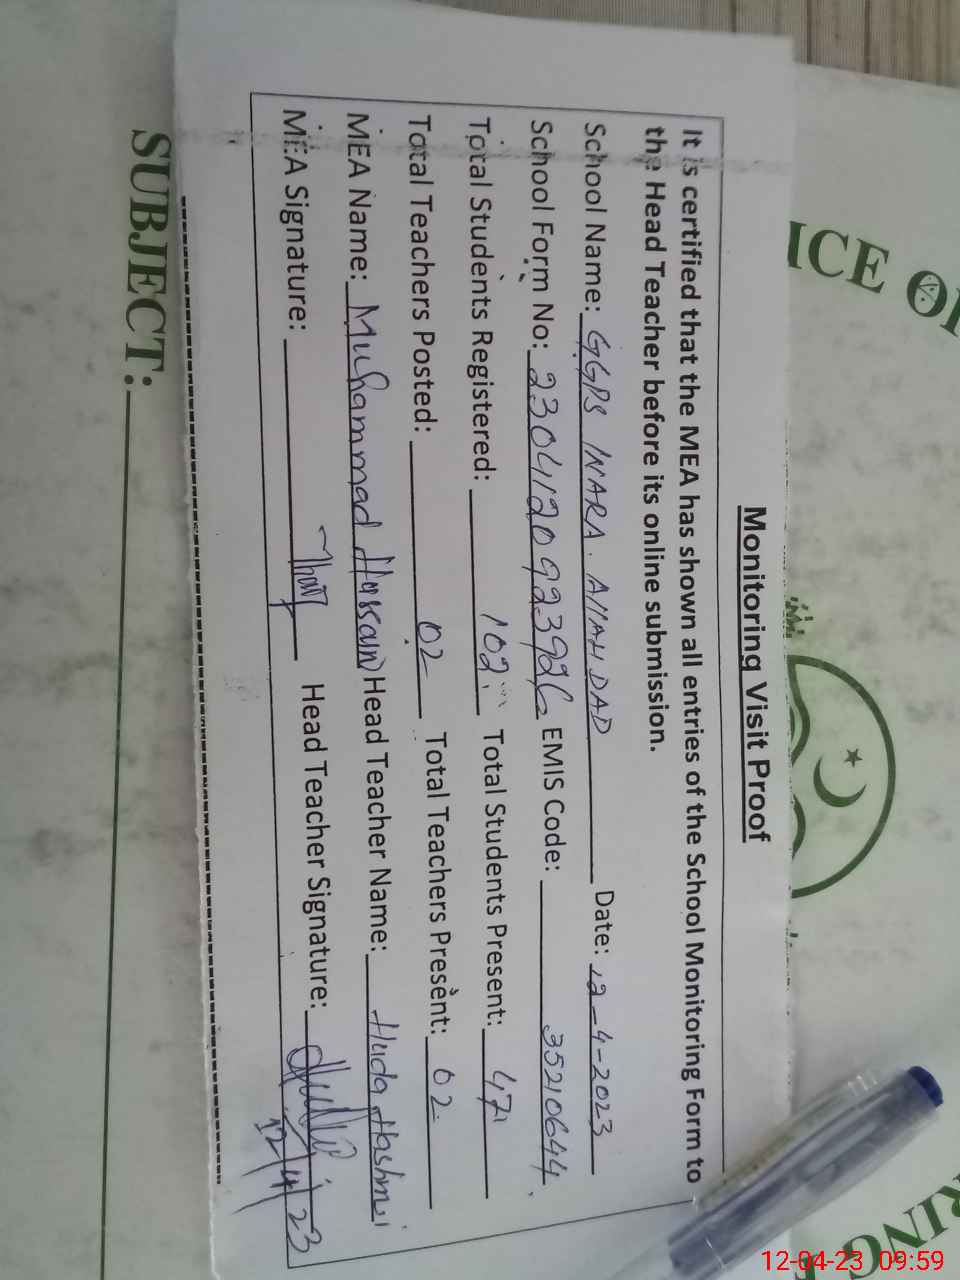 Monitoring Visit Proof
It is certified that the MEA has shown all entries of the School Monitoring Form to
the Head Teacher before its online submission.
School Name: GGPS INARA. Allah DAD Date: 12-4-2023
School Form No: 2304120923926 EMIS Code: 35210644.
Total Students Registered: 102 Total Students Present: 47
Total Teachers Posted: 02 Total Teachers Present: 02
MEA Name: Muhammad Hassan Head Teacher Name: Huda Hashmi
MEA Signature: Head Teacher Signature:
12/4/23
SUBJECT:
ICE OF
RING
12-04-23 09:59